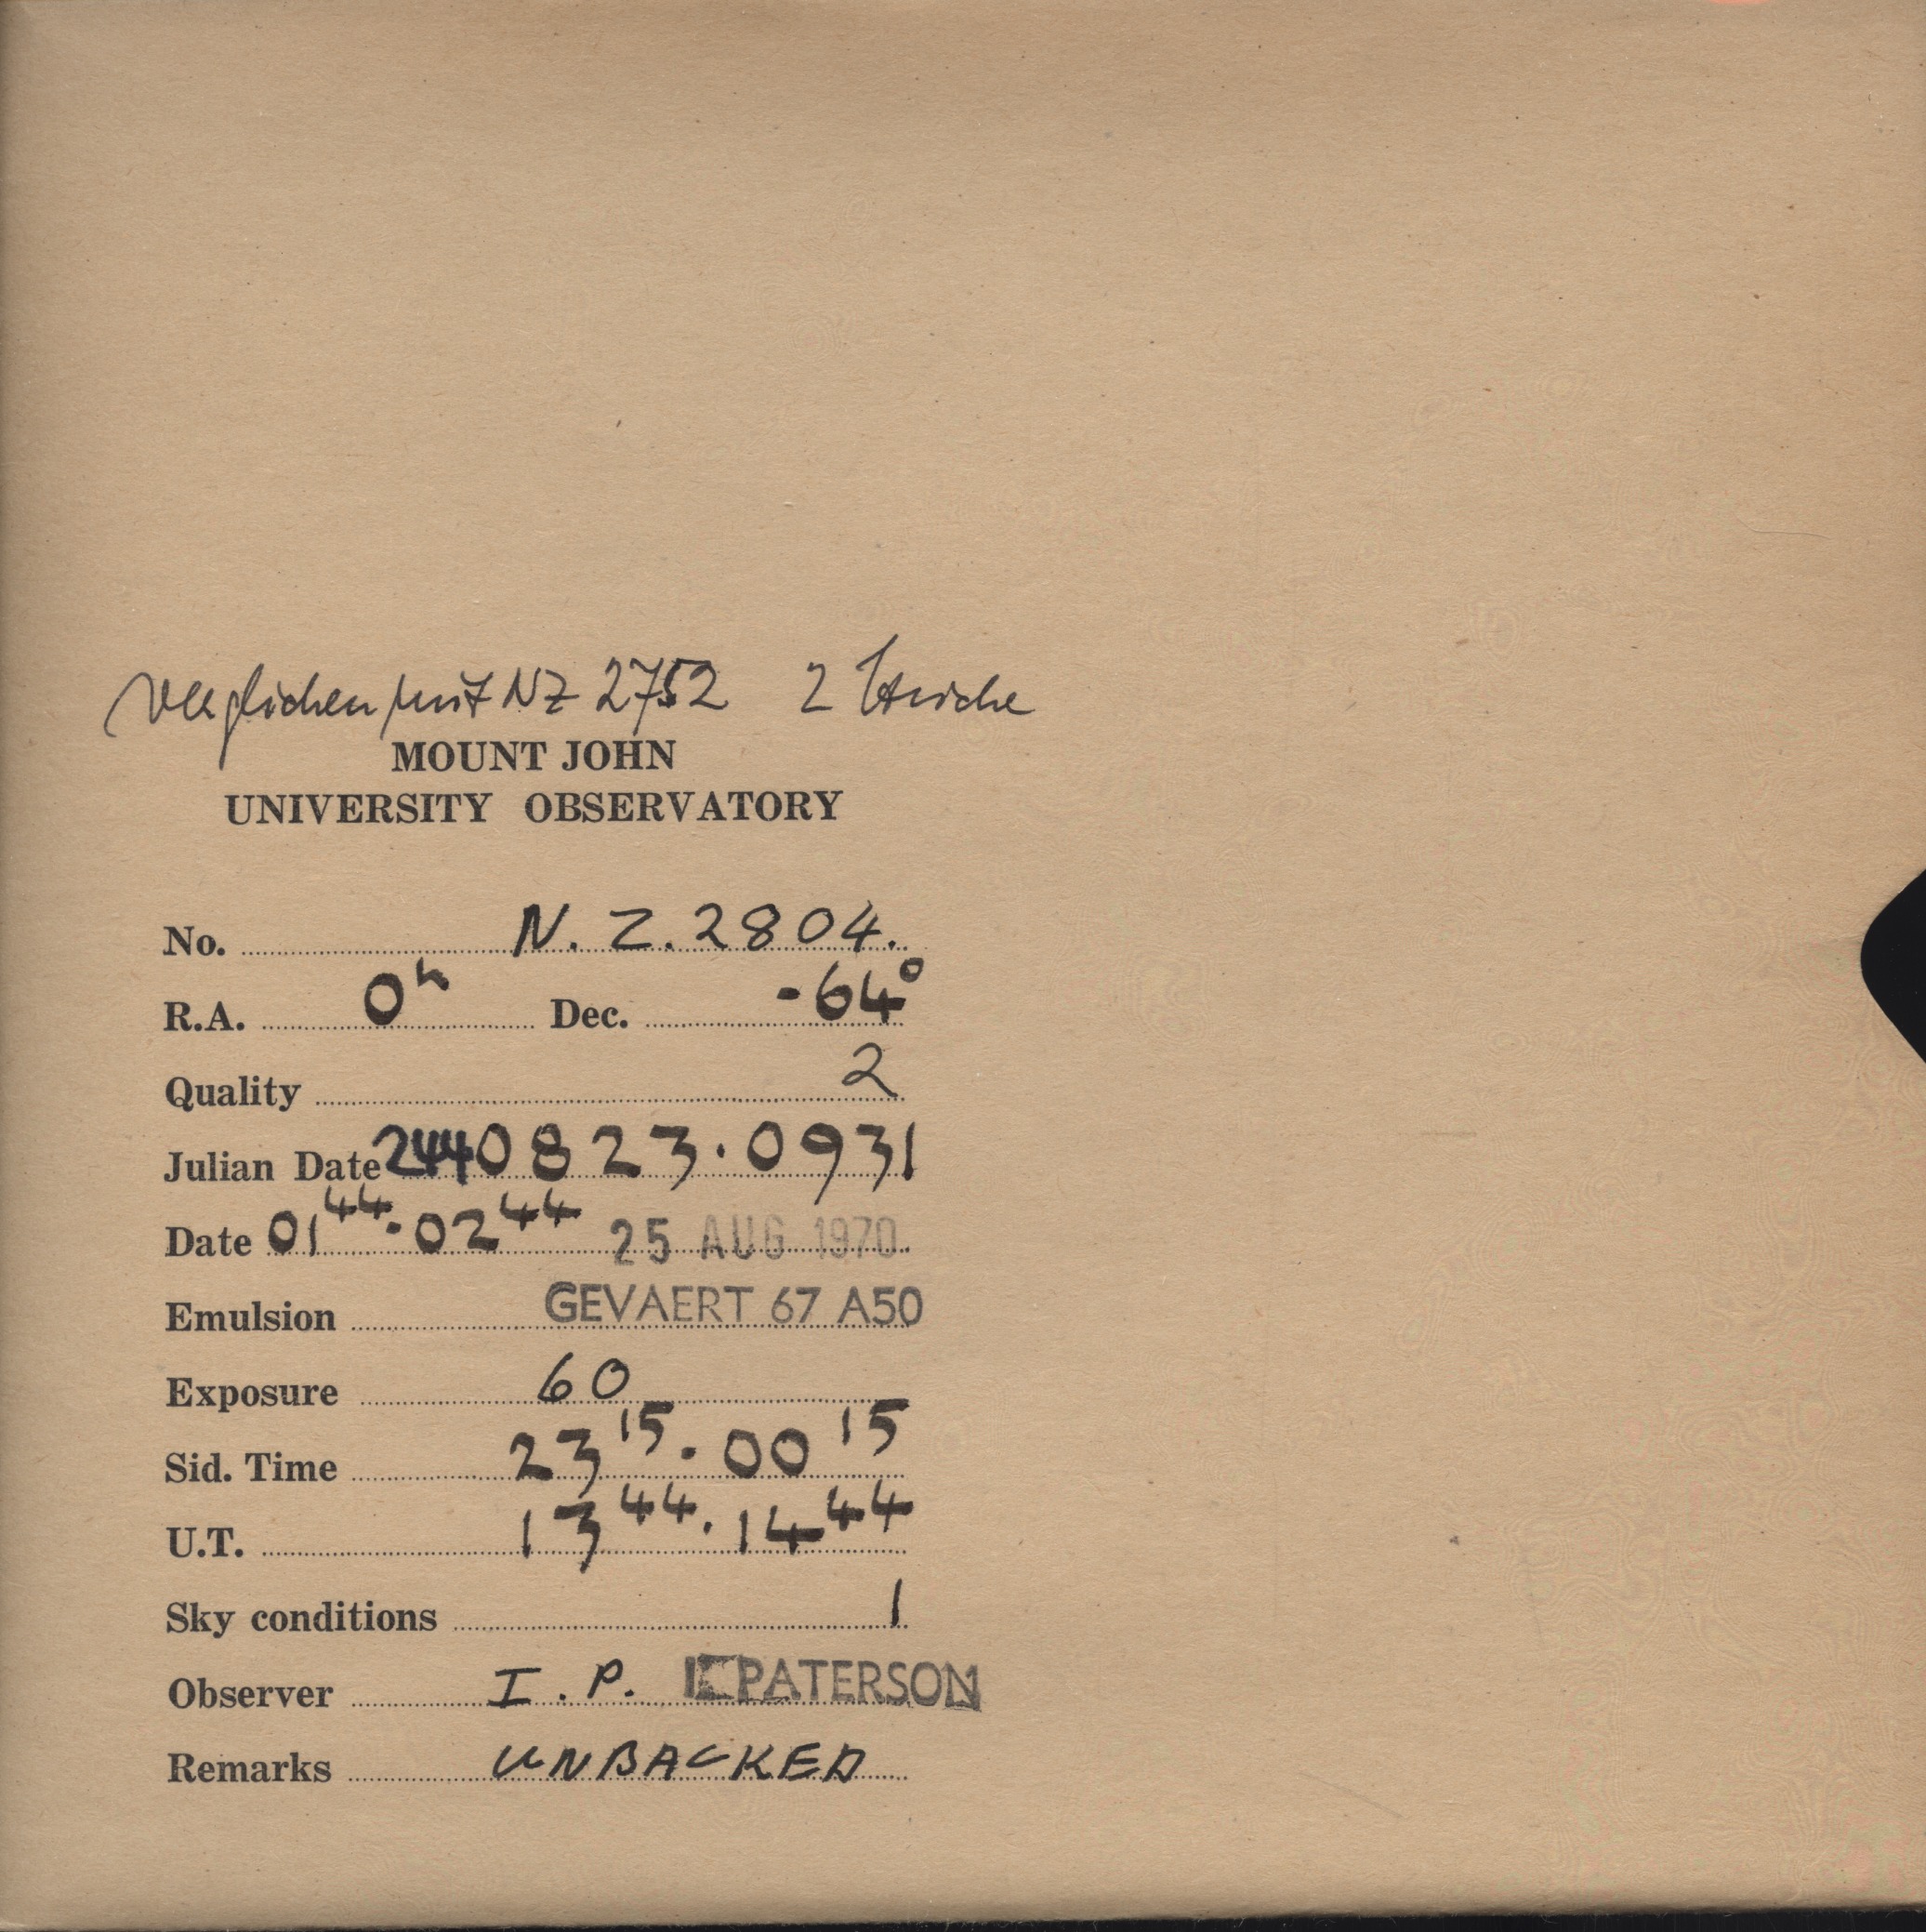 verglichen mit NZ 2752 2 Striche
MOUNT JOHN
UNIVERSITY OBSERVATORY
No. N.Z.2804.
R.A. 0ʰ Dec. -64°
Quality 2
Julian Date 2440823.0931
Date 01⁴⁴.02⁴⁴ 25 AUG 1970
Emulsion GEVAERT 67 A50
Exposure 60
Sid. Time 23¹⁵.00¹⁵
U.T. 13⁴⁴.14⁴⁴
Sky conditions 1
Observer I.P. PATERSON
Remarks UNBACKED